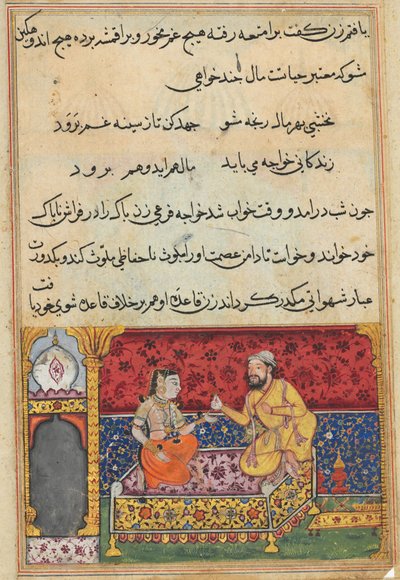 یافتم زن گفت بر امتعه رفته هیچ غم مخور و بر اقمشه برده هیچ اندوهگین
شو که معتبر حیاتست مال چند خواهی
نخشبی بهر مال رنجه مشو جهد کن تا ز سینه غم برود
زندگانی خواجه می باید مال هم اید و هم برود
چون شب درامد و وقت خواب شد خواجه فرعی زن پاک را در فراش ناپاک
خود خواند و خواست تا دامن عصمت او را بلوث ناحفاظی ملوث کند و بکدورت
غبار شهوانی مکدر کرداند زن قاعده او هم بر خلاف قاعده شوی خود یافت